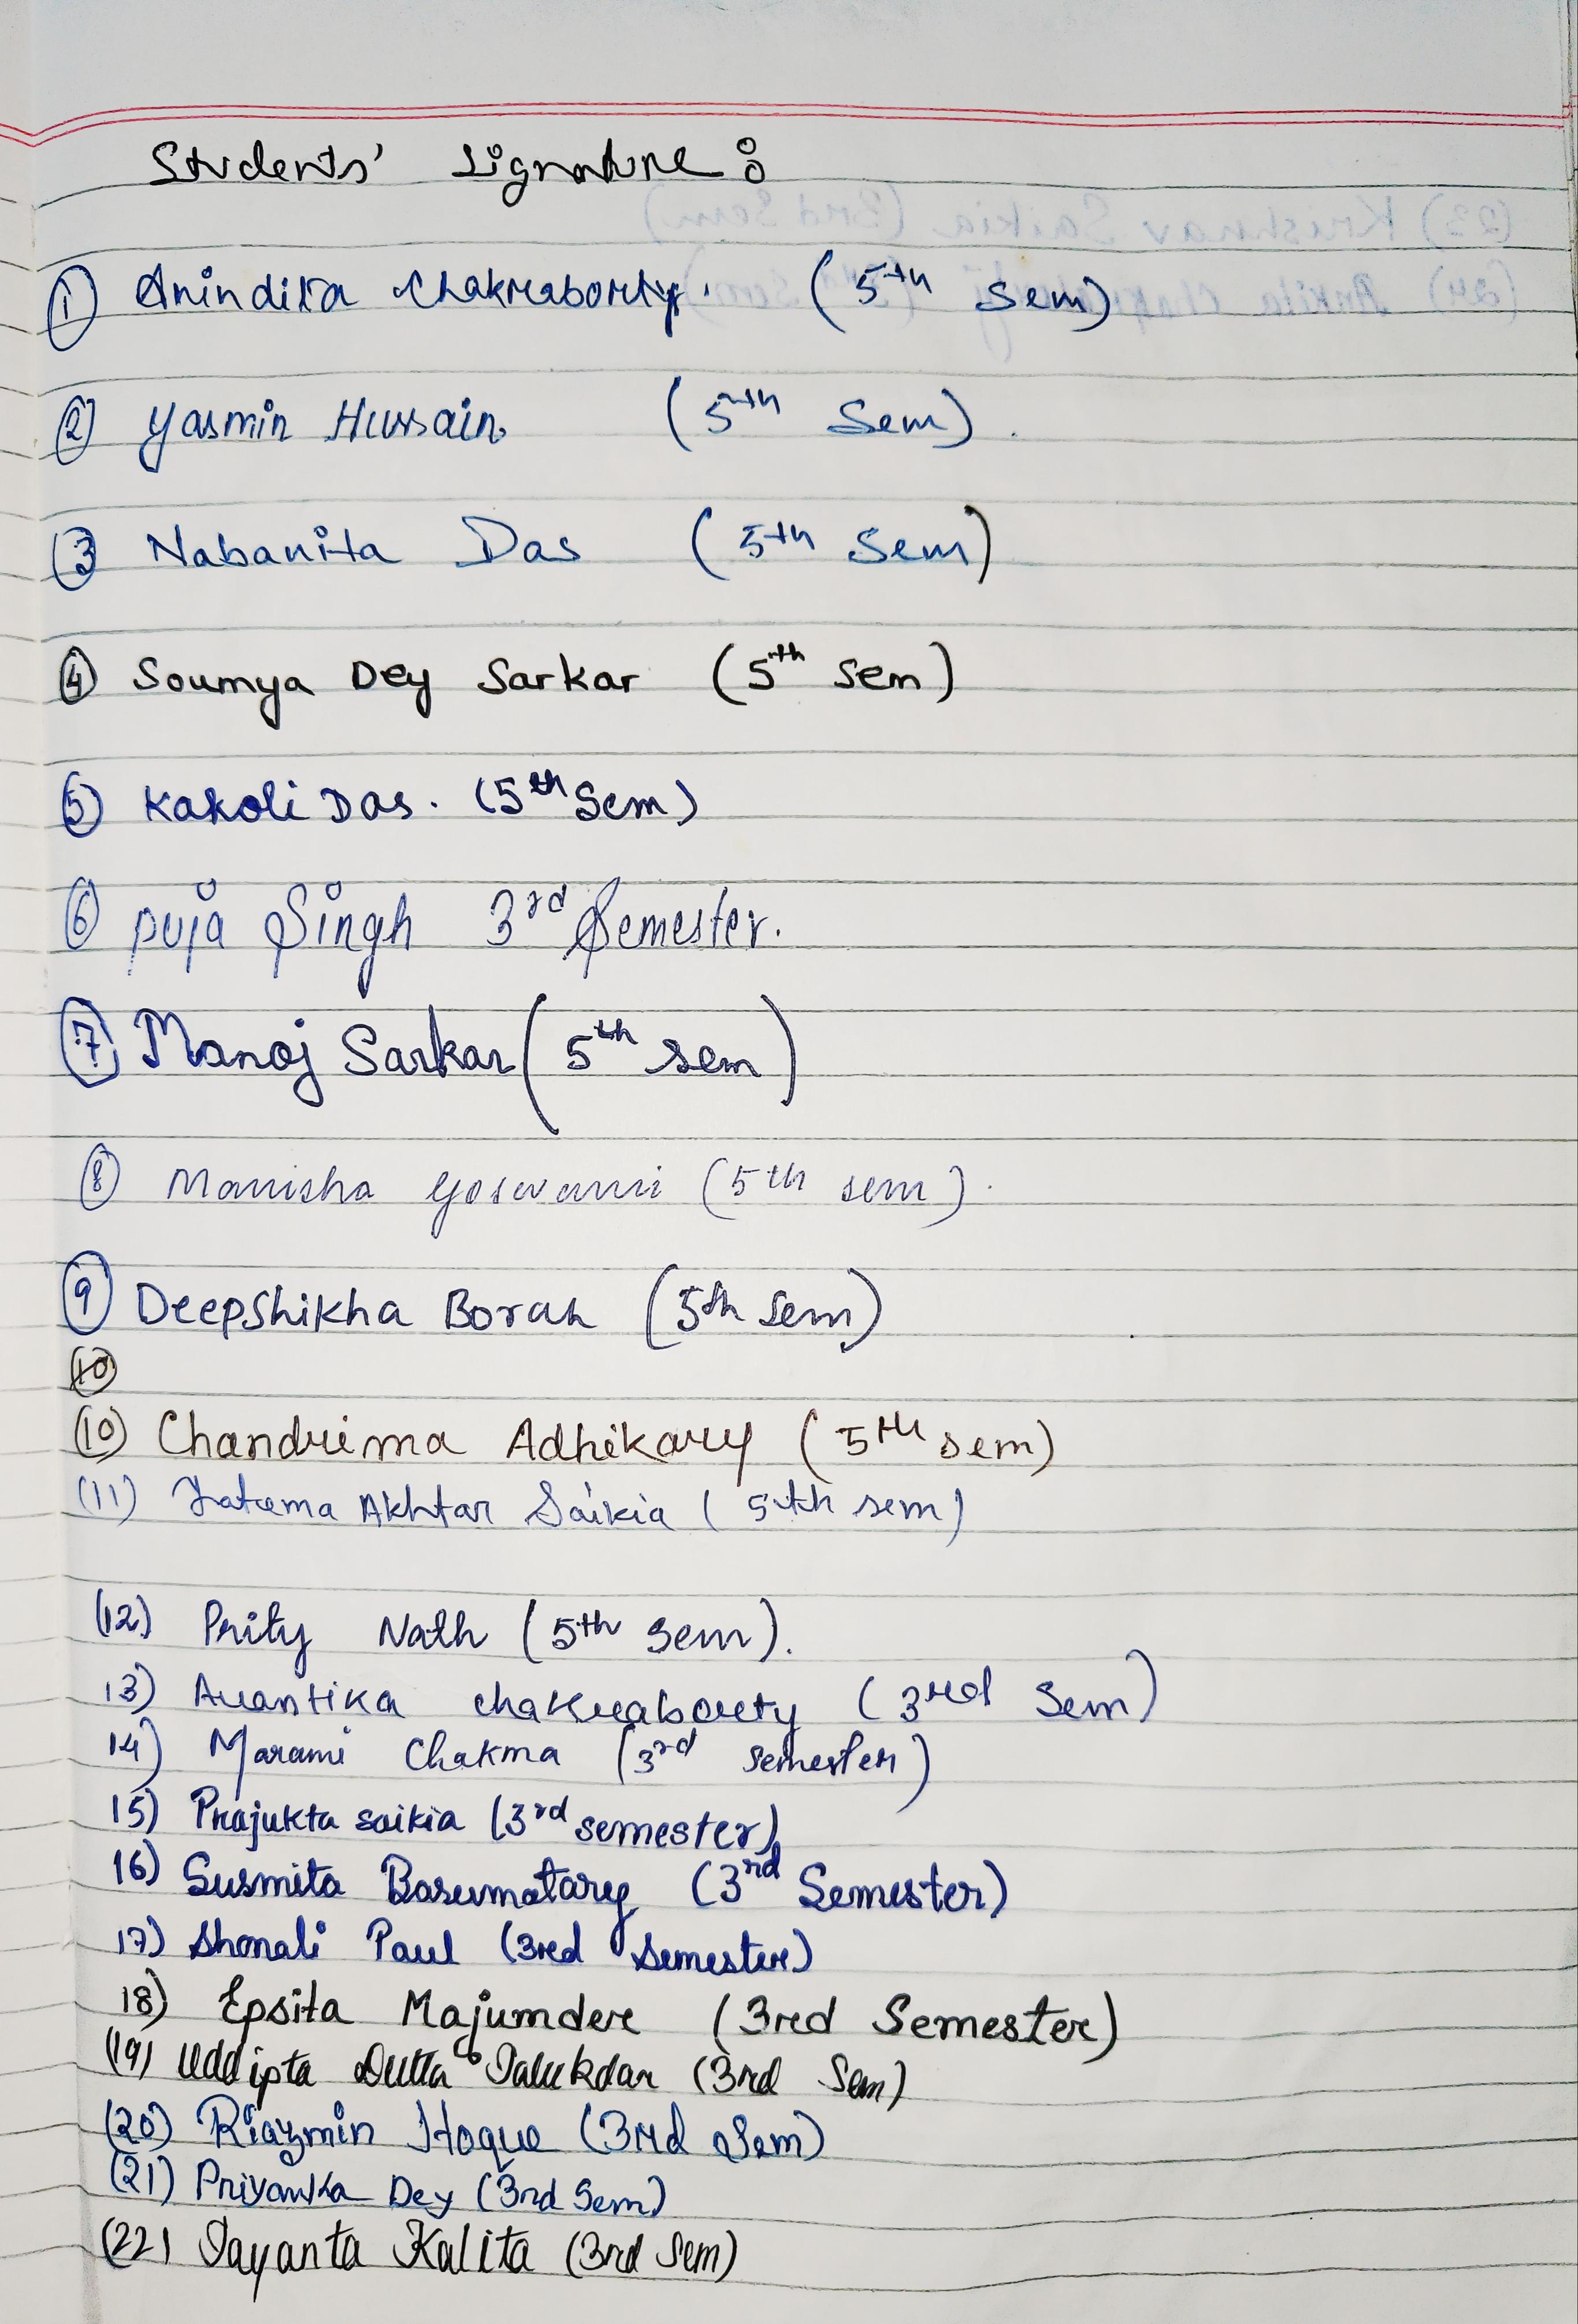 Students' Signature :
① Anindita Chakraborty. (5th sem)
② Yasmin Hussain. (5th Sem).
③ Nabanita Das (5th Sem)
④ Soumya Dey Sarkar (5th sem)
⑤ Kakoli Das. (5th Sem)
⑥ puja Singh 3rd Semester.
⑦ Manoj Sarkar (5th sem)
⑧ Manisha Goswami (5th sem).
⑨ Deepshikha Borah (5th Sem)
(10) Chandrima Adhikary (5th sem)
(11) Fatema Akhtar Saikia (5th sem)
(12) Prity Nath (5th Sem).
13) Avantika Chakraborty (3rd Sem)
14) Marami Chakma (3rd semester)
15) Prajukta saikia (3rd semester)
16) Susmita Basumatary (3rd Semester)
17) Shonali Paul (3rd Semester)
18) Epsita Majumder (3rd Semester)
(19) Uddipta Dutta Talukdar (3rd Sem)
(20) Riazmin Hoque (3rd Sem)
(21) Priyanka Dey (3rd Sem)
(22) Jayanta Kalita (3rd Sem)